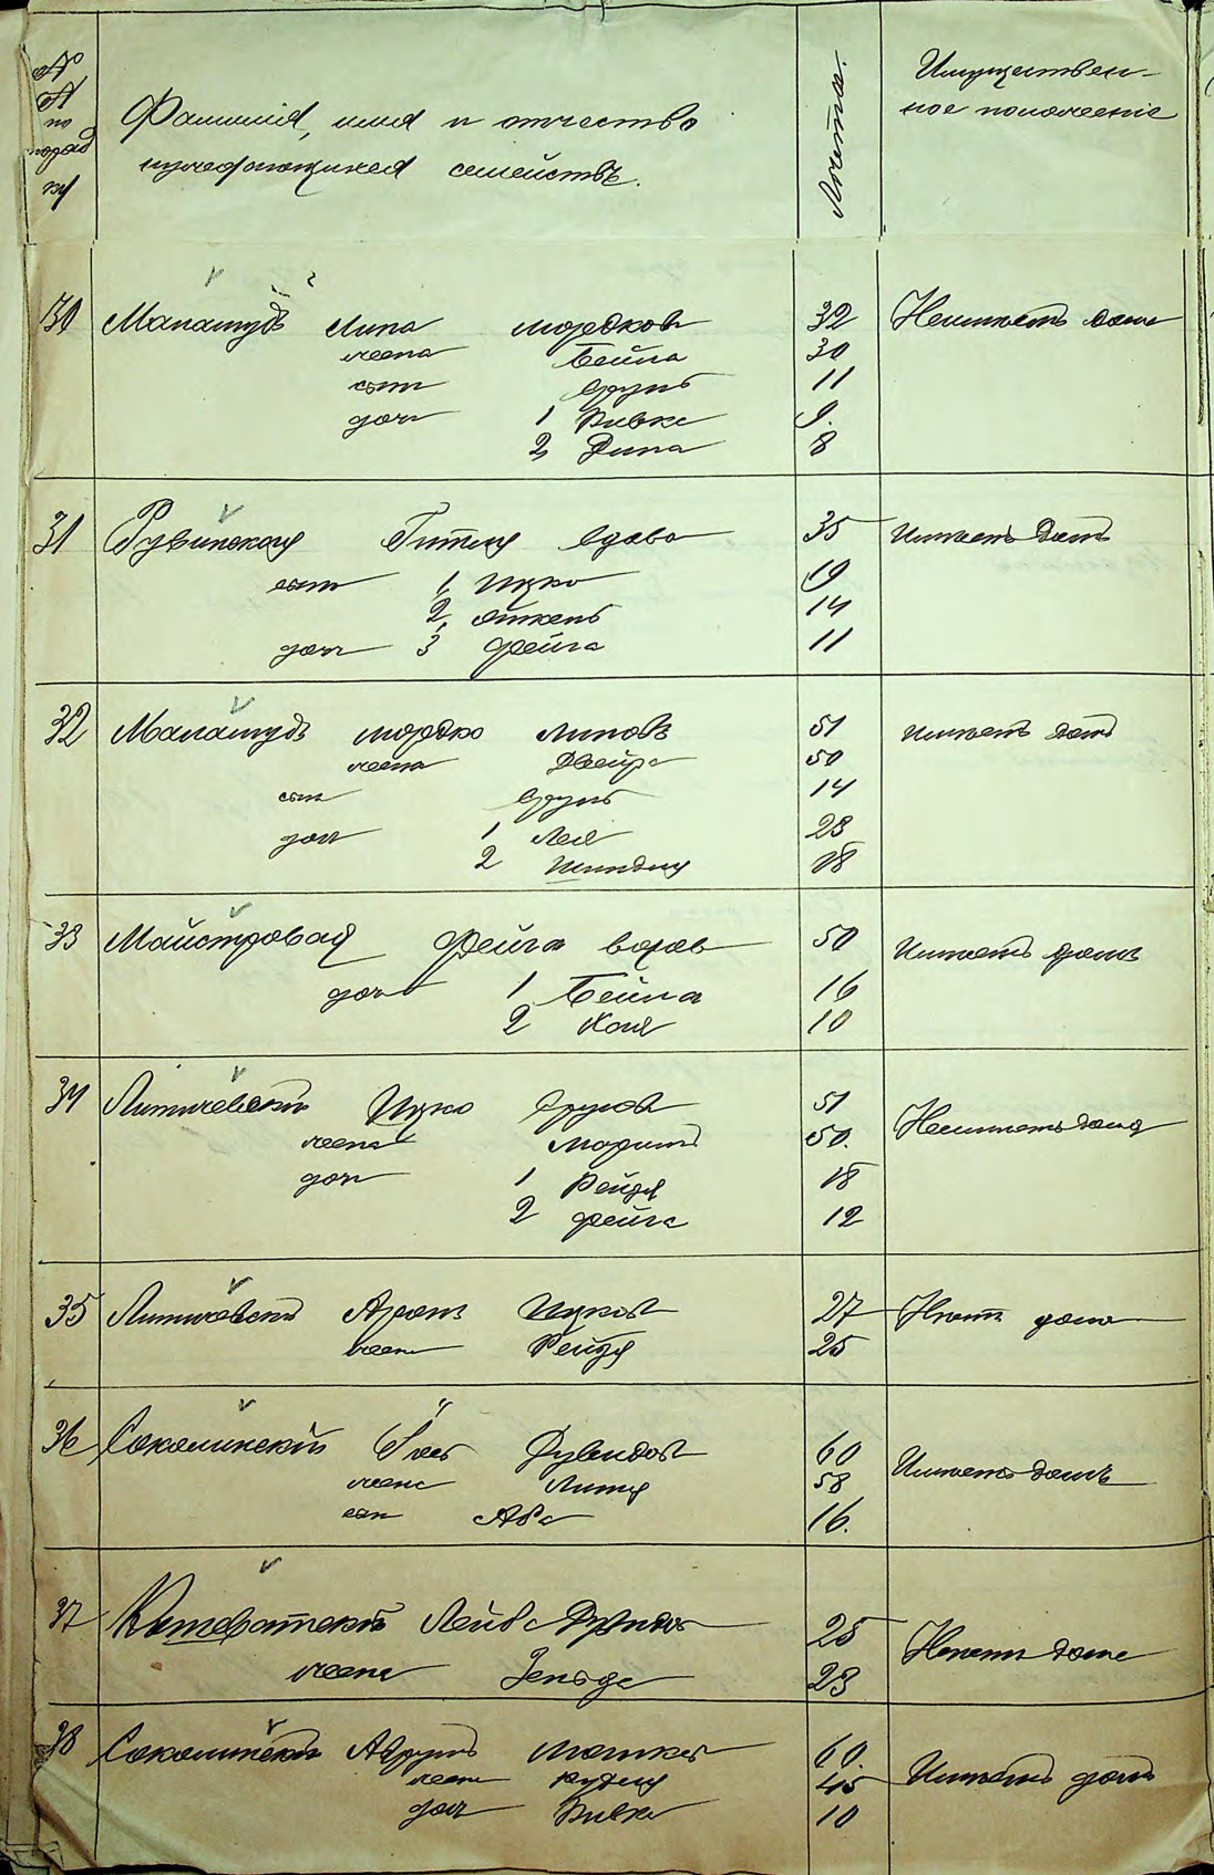 №№ по порядку
Фамилия, имя и отчество нуждающихся семействъ.
Лѣта.
Имущественное положеніе
30 Малашудъ Липа Мордков 32 Неимѣетъ дома
жена Бейла 30
сын Срулъ 11
доч 1 Ривка 9.
2, Дина 8
31 Рувинская Гитля вдова 35 Имѣетъ домъ
сын 1, Ицко 19
2, 14
доч 3 Фейга 11
32 Малашудъ Мордко Липовъ 51 Имѣетъ домъ
жена Двейра 50
сын Срулъ 14
доч 1 Лея 23
2 Шиндля 18
33 Майстровая Фейга вдова 50 Имѣетъ домъ
доч 1 Бейла 16
2 Хая 10
34 Литичевскій Ицко Срулов 51 Неимѣетъ дома
жена Мариям 50.
доч 1 Рейзя 18
2 Фейга 12
35 Литичевскій Аронъ Ицков 27 Неимѣет дома
жена Рейзя 25
36 Соколинскій Іось Дувидов 60 Имѣетъ домъ
жена 58
сын Аба 16.
37 Лейба Дувидов 25 Неимѣет дома
жена Зельда 23
38 Соколинскій Аврумъ Мошков 60. Имѣетъ домъ
жена 45
доч Ривка 10